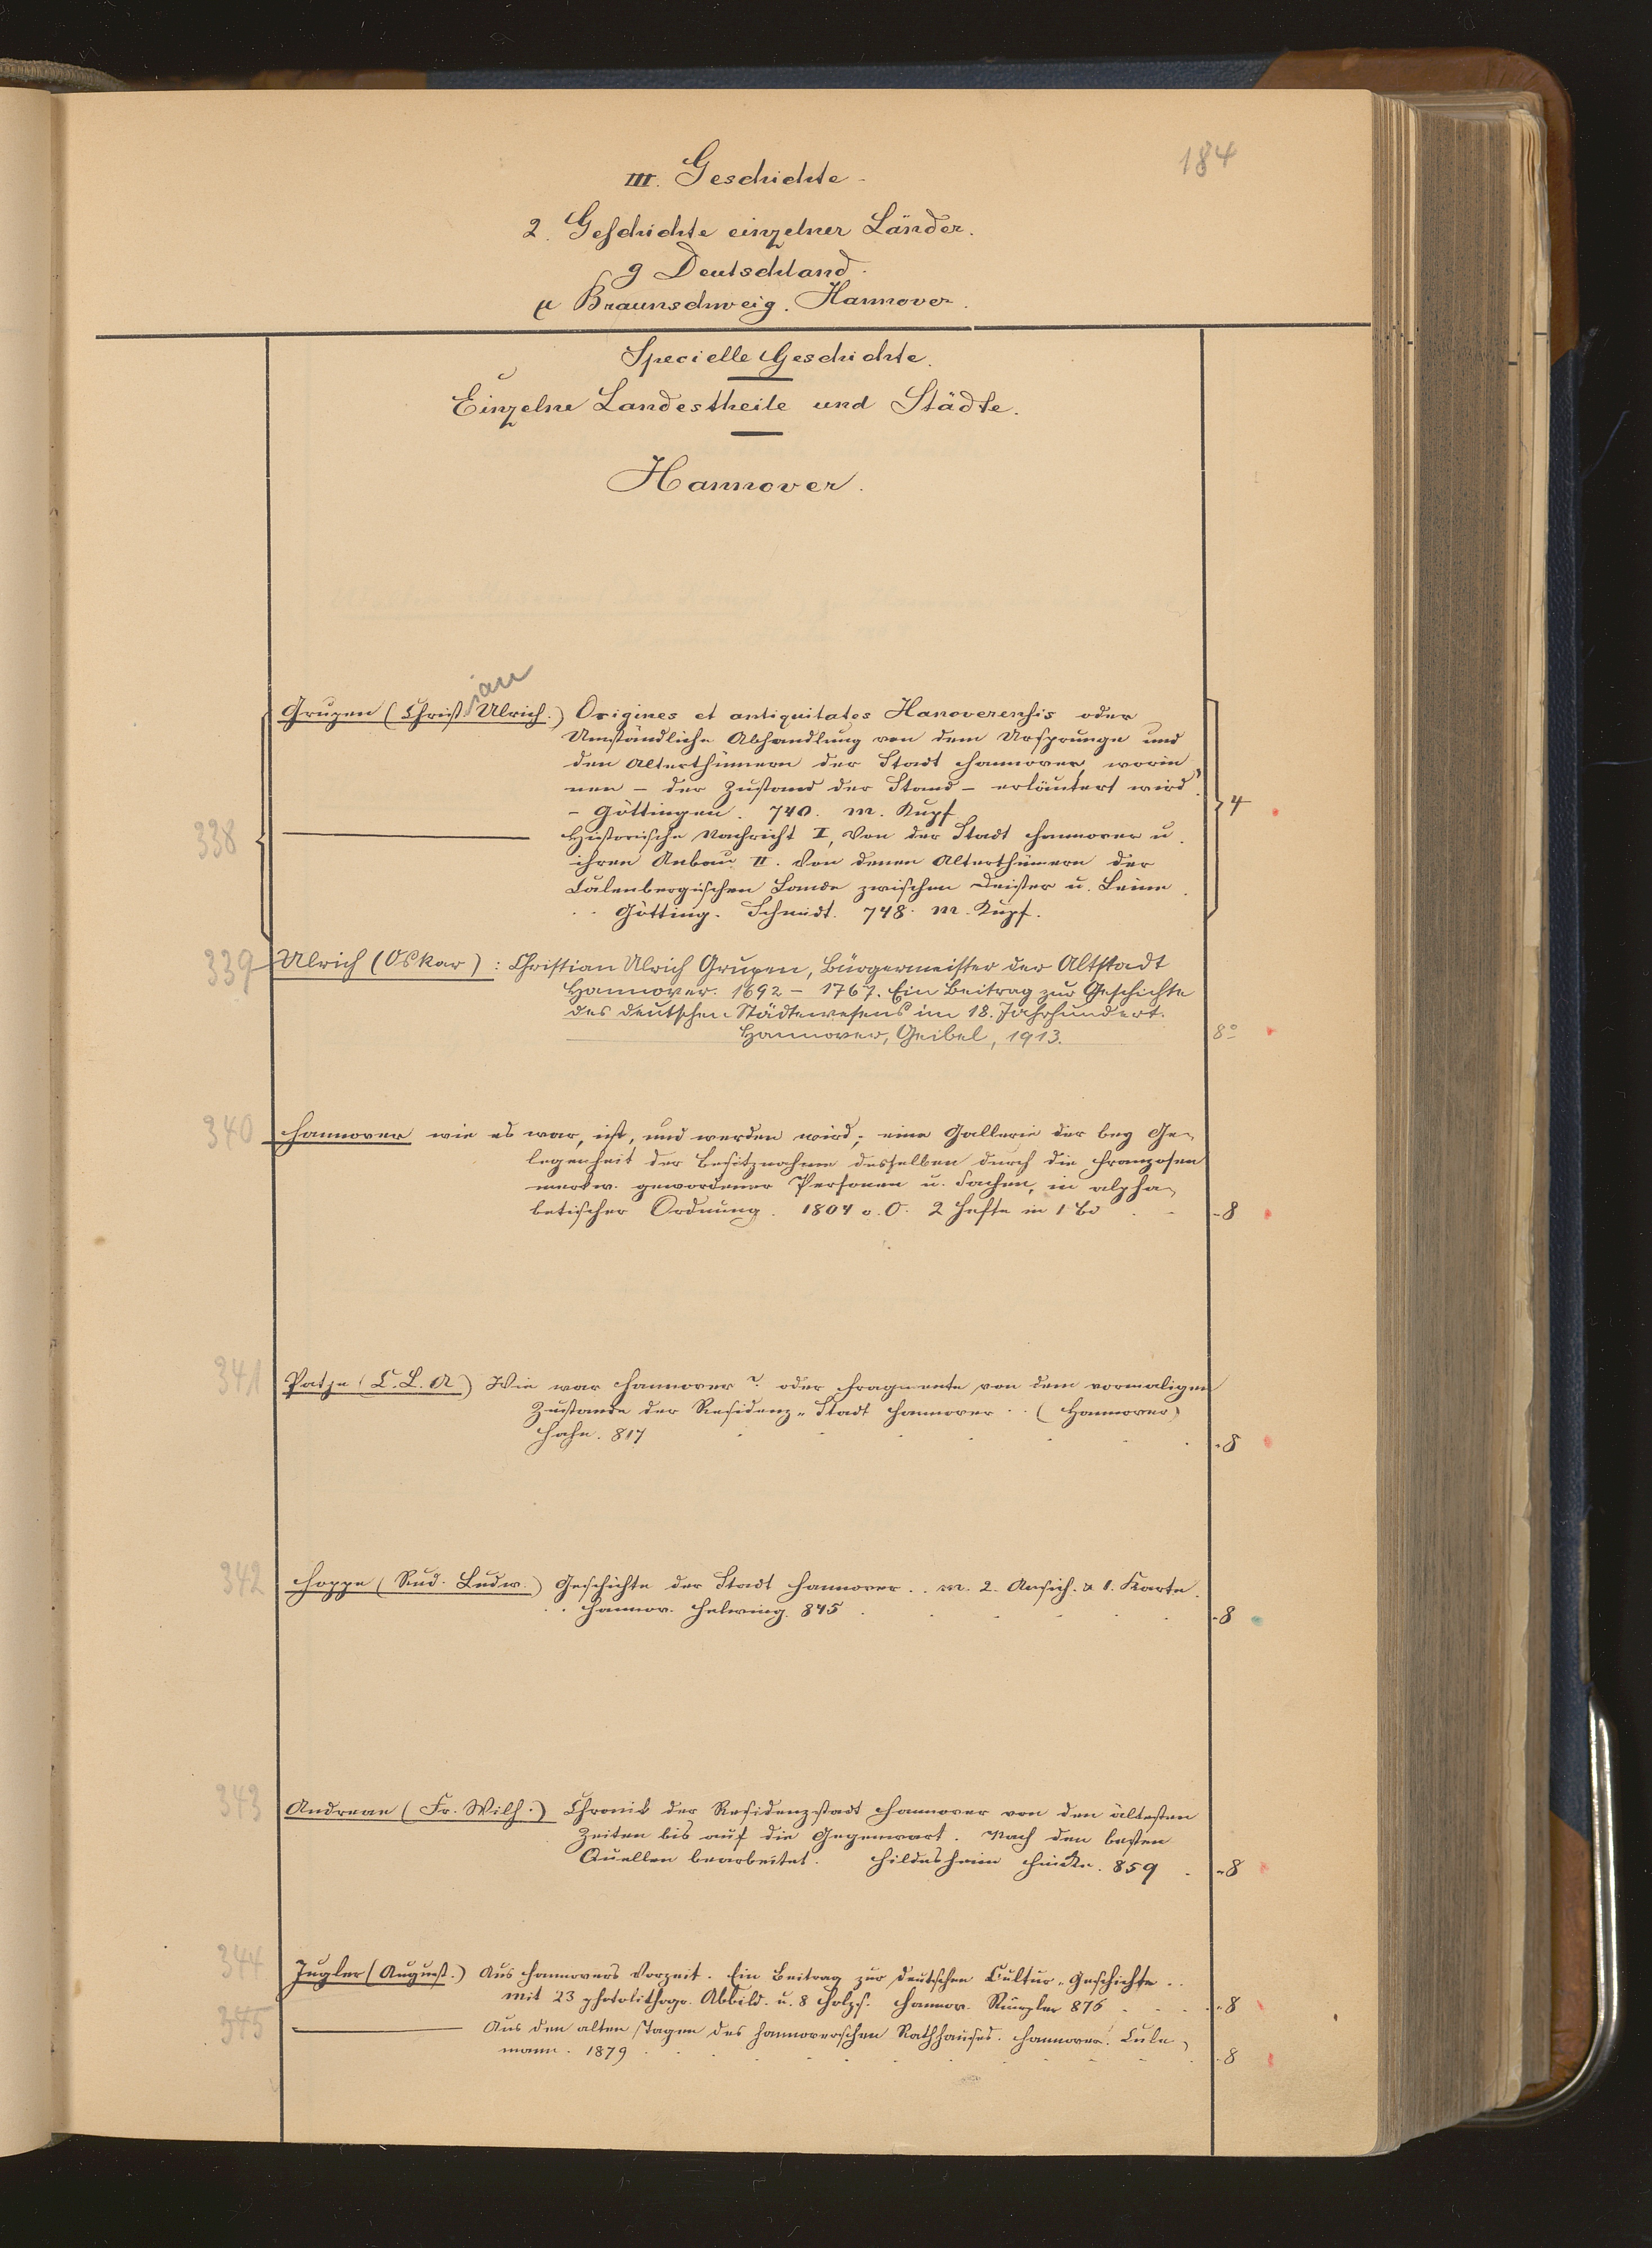 184
III. Geschichte
2. Geschichte einzelner Länder.
g Deutschland.
μ Braunschweig. Hannover.
Specielle Geschichte.
Einzelne Landestheile und Städte.
Hannover.
ian
Grupen (Christ. Ulrich.) Origines et antiquitates Hanoverensis oder
Umständliche Abhandlung von dem Ursprunge und
den Alterthümern der Stadt Hannover, worin
nen – der Zustand der Stand – erläutert wird.
– Göttingen. 740. m. Kupf
4
338
Historische Nachricht I, Von der Stadt Hannover u.
ihren Anbau II. Von denen Alterthümern der
Calenbergischen Lande zwischen Deister u. Leine.
Götting. Schmidt. 748. m. Kupf.
339 Ulrich (Oskar): Christian Ulrich Grupen, Bürgermeister der Altstadt
Hannover. 1692 – 1767. Ein Beitrag zur Geschichte
des deutschen Städtewesens im 18. Jahrhundert.
Hannover, Geibel, 1913. 8°
340 Hannover wie es war, ist, und werden wird; eine Gallerie der bey Ge-
legenheit der Besitznahme desselben durch die Franzosen
merkw. gewordener Personen u. Sachen, in alpha-
betischer Ordnung. 1804 o. O. 2 Hefte in 1 Bd - 8
341 Patje (C. L. A) Wie war Hannover? oder Fragmente von dem vormaligen
Zustande der Residenz-Stadt Hannover . . (Hannover)
Hahn. 817 8
342 Hoppe (Rud. Ludw.) Geschichte der Stadt Hannover . . m. 2. Ansich. & 1. Karte.
. . Hannov. Helwing. 845 . 8
343 Andreae (Fr. Wilh.) Chronik der Residenzstadt Hannover von den ältesten
Zeiten bis auf die Gegenwart. Nach den besten
Quellen bearbeitet. Hildesheim Fincke. 859 . 8
344 Jugler (August.) Aus Hannovers Vorzeit. Ein Beitrag zur deutschen Cultur-Geschichte . .
mit 23 photolithogr. Abbild. u. 8 Holzs. Hannov. Rümpler 876 . 8
345 Aus den alten Tagen des Hannoverschen Rathhauses. Hannover. Cule-
mann. 1879 . 8